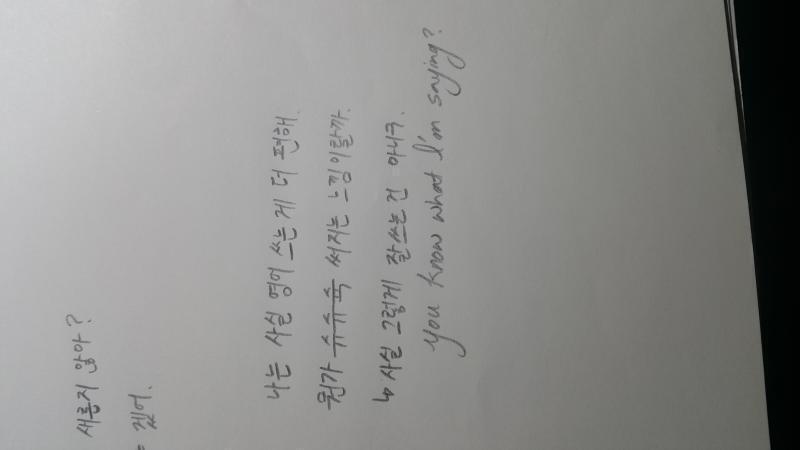 새롭지 않아?
겠어.
나는 사실 영어 쓰는 게 더 편해.
뭔가 슈슈슉 써지는 느낌이랄까.
↳ 사실 그렇게 잘쓰는건 아니구.
you know what I'm saying?